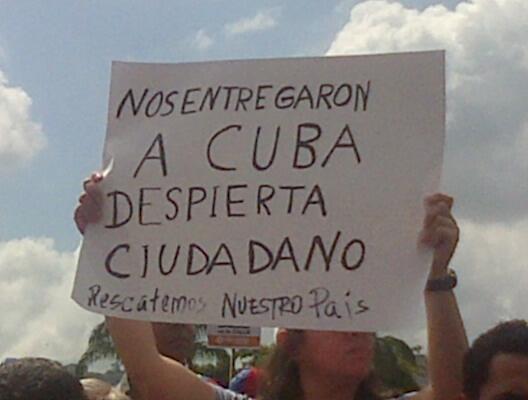 NOS ENTREGARON
A CUBA
DESPIERTA
CIUDADANO
Rescatemos NUESTRO Pais